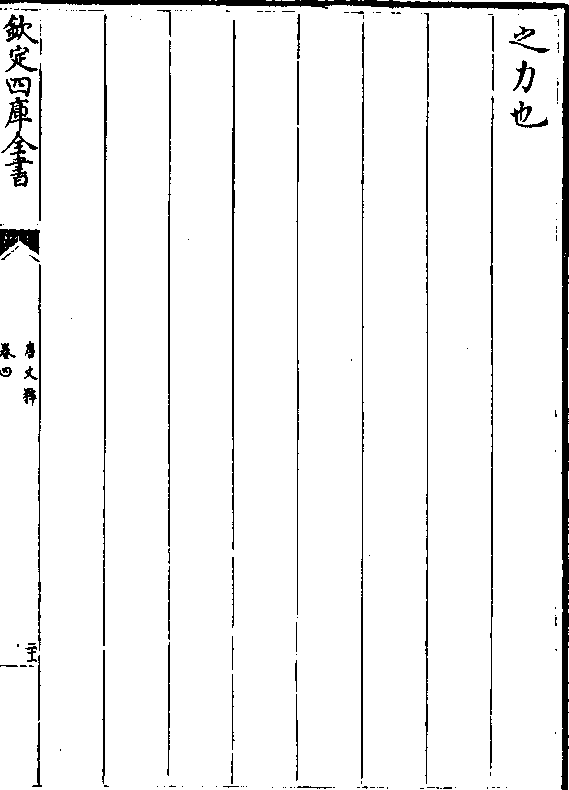 之力也
欽定四庫全書
唐文粹
卷四